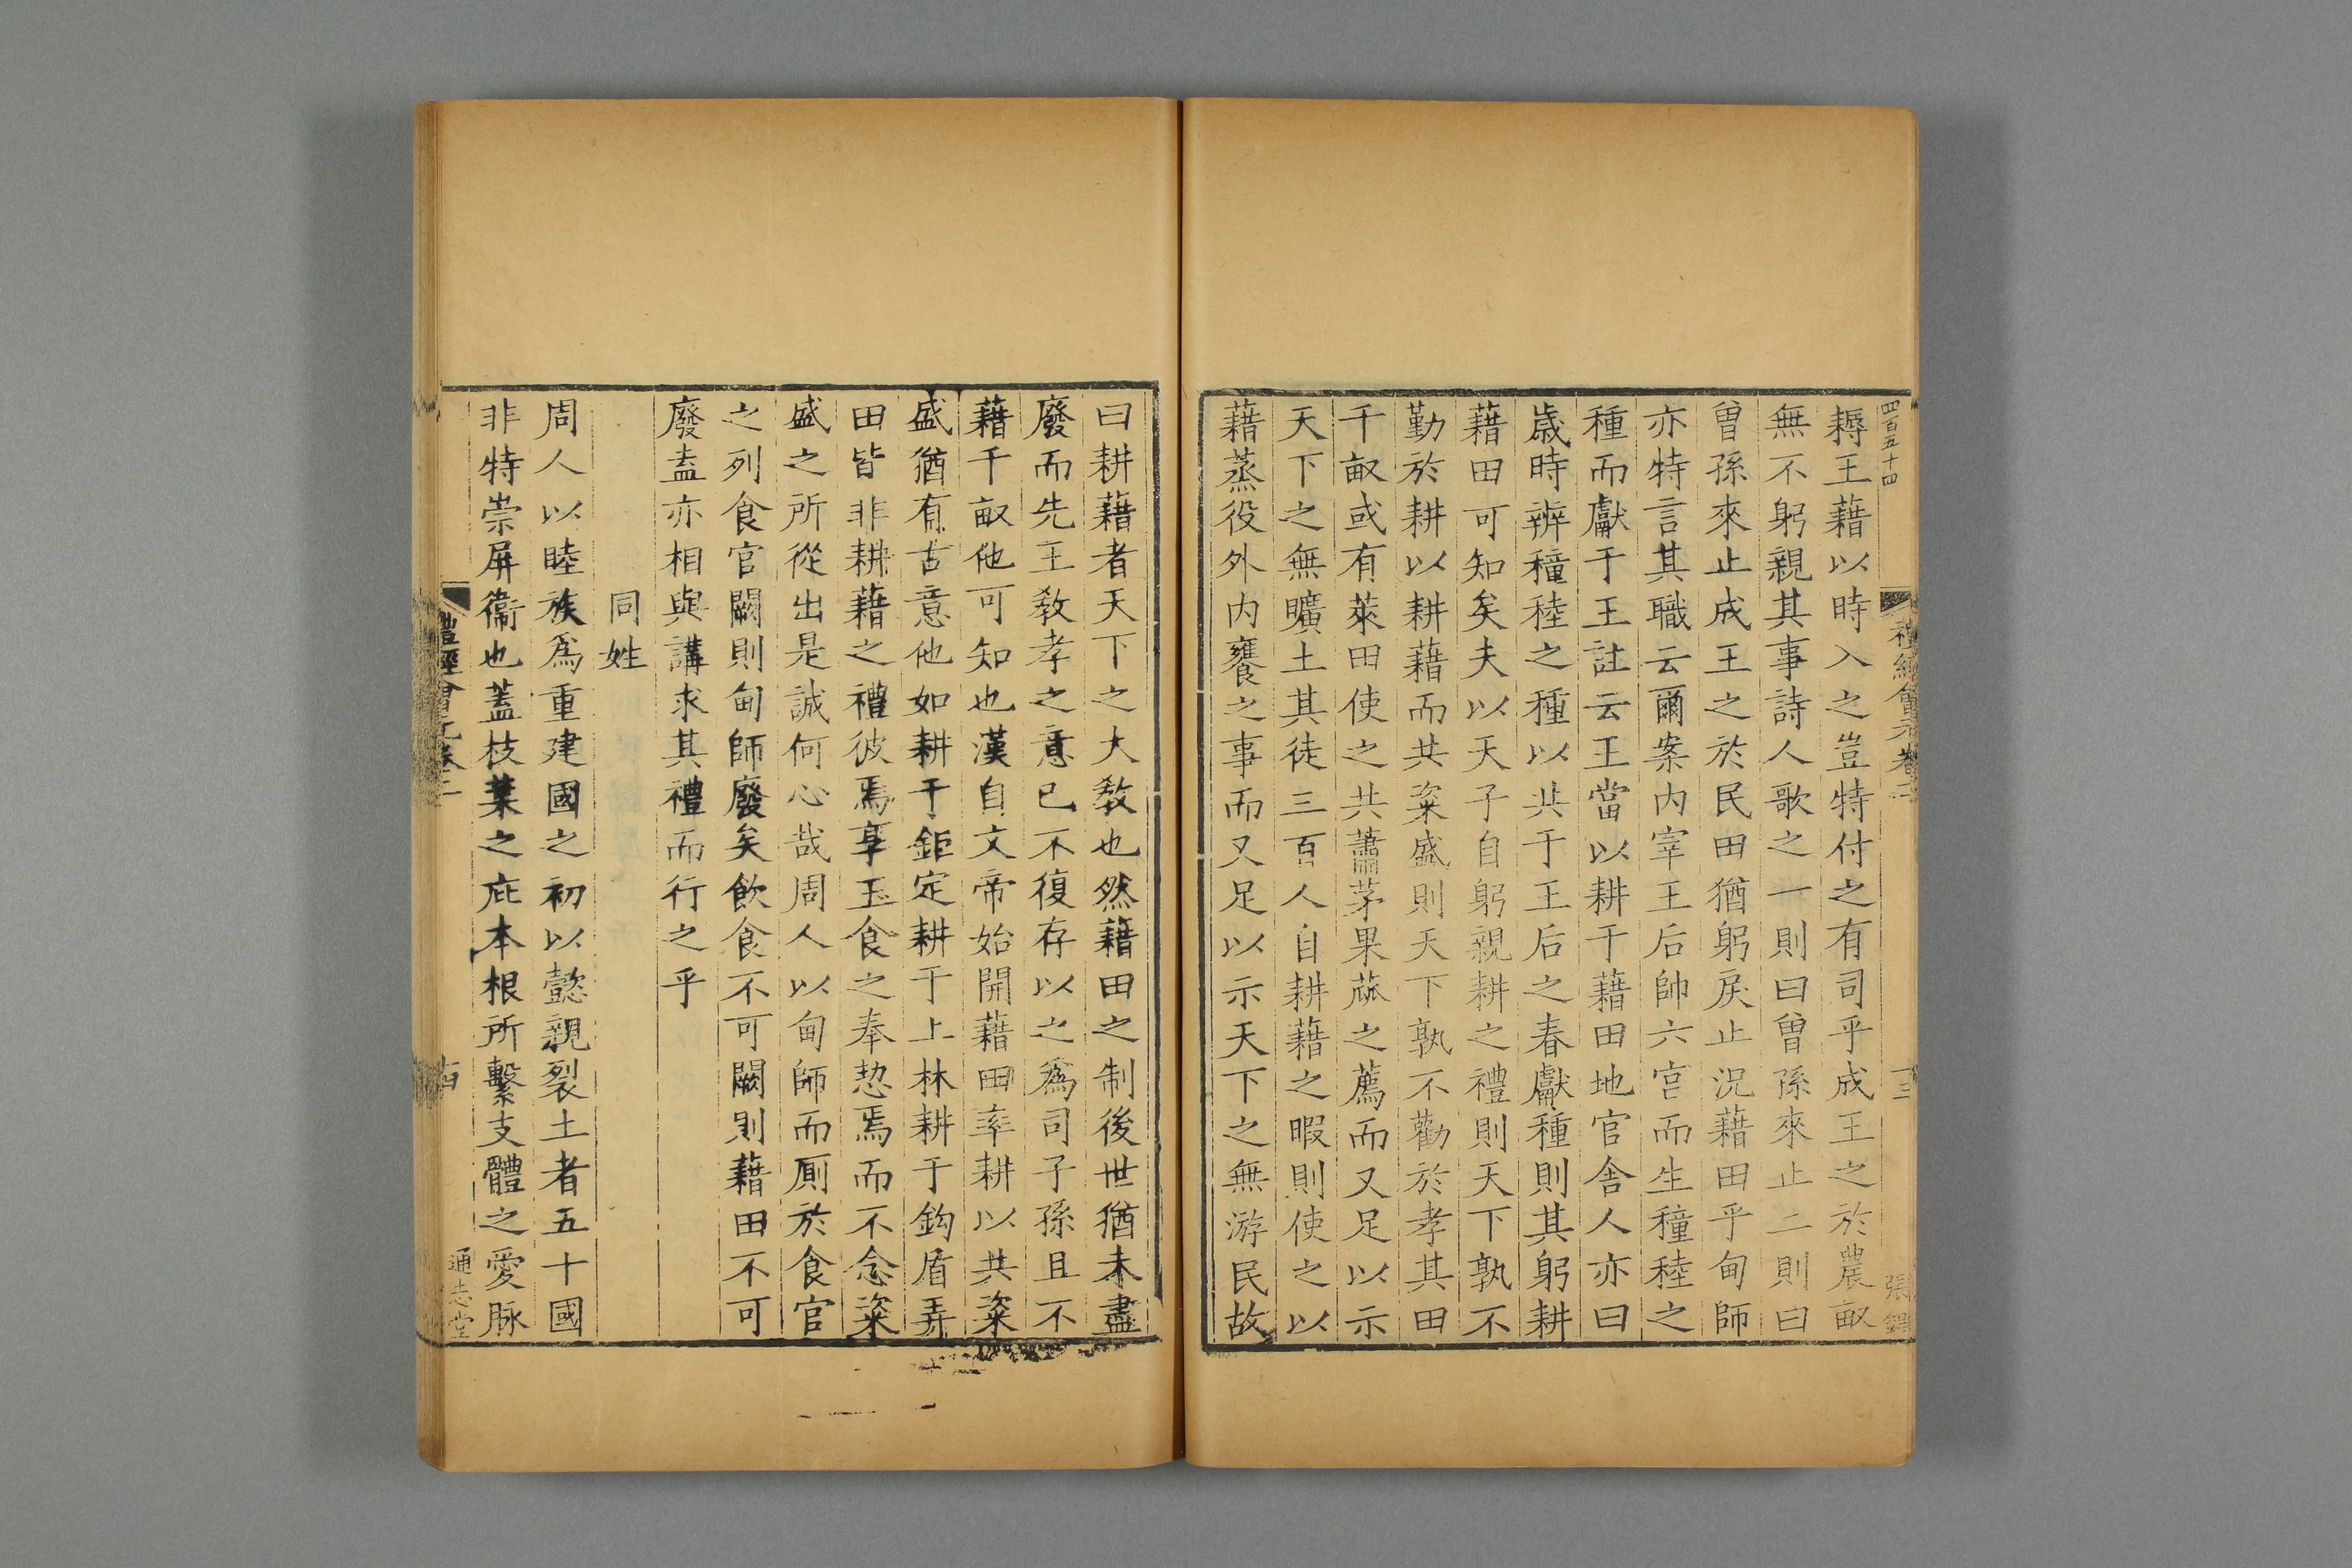 四百五十四
禮經會元卷二
十三
耨王藉以時入之豈特付之有司乎成王之於農畝
無不躬親其事詩人歌之一則曰曾孫來止二則曰
曾孫來止成王之於民田猶躬戾止況藉田乎甸師
亦特言其職云爾案内宰王后帥六宫而生穜稑之
種而獻于王註云王當以耕于藉田地官舍人亦曰
歲時辨穜稑之種以共于王后之春獻種則其躬耕
藉田可知矣夫以天子自躬親耕之禮則天下孰不
勤於耕以耕藉而共粢盛則天下孰不勸於孝其田
千畝或有萊田使之共蕭茅果蓏之薦而又足以示
天下之無曠土其徒三百人自耕藉之暇則使之以
藉蒸役外内饔之事而又足以示天下之無游民故
曰耕藉者天下之大敎也然藉田之制後世猶未盡
廢而先王敎孝之意已不復存以之爲司子孫且不
藉千畝他可知也漢自文帝始開藉田率耕以共粢
盛猶有古意他如耕于鉅定耕于上林耕于鈎盾弄
田皆非耕藉之禮彼焉享玉食之奉恝焉而不念粢
盛之所從出是誠何心哉周人以甸師而厠於食官
之列食官闕則甸師廢矣飲食不可闕則藉田不可
廢盍亦相與講求其禮而行之乎
同姓
周人以睦族爲重建國之初以懿親裂土者五十國
非特崇屏衞也蓋枝葉之庇本根所繫支體之愛脉
禮經會元卷二
通志堂